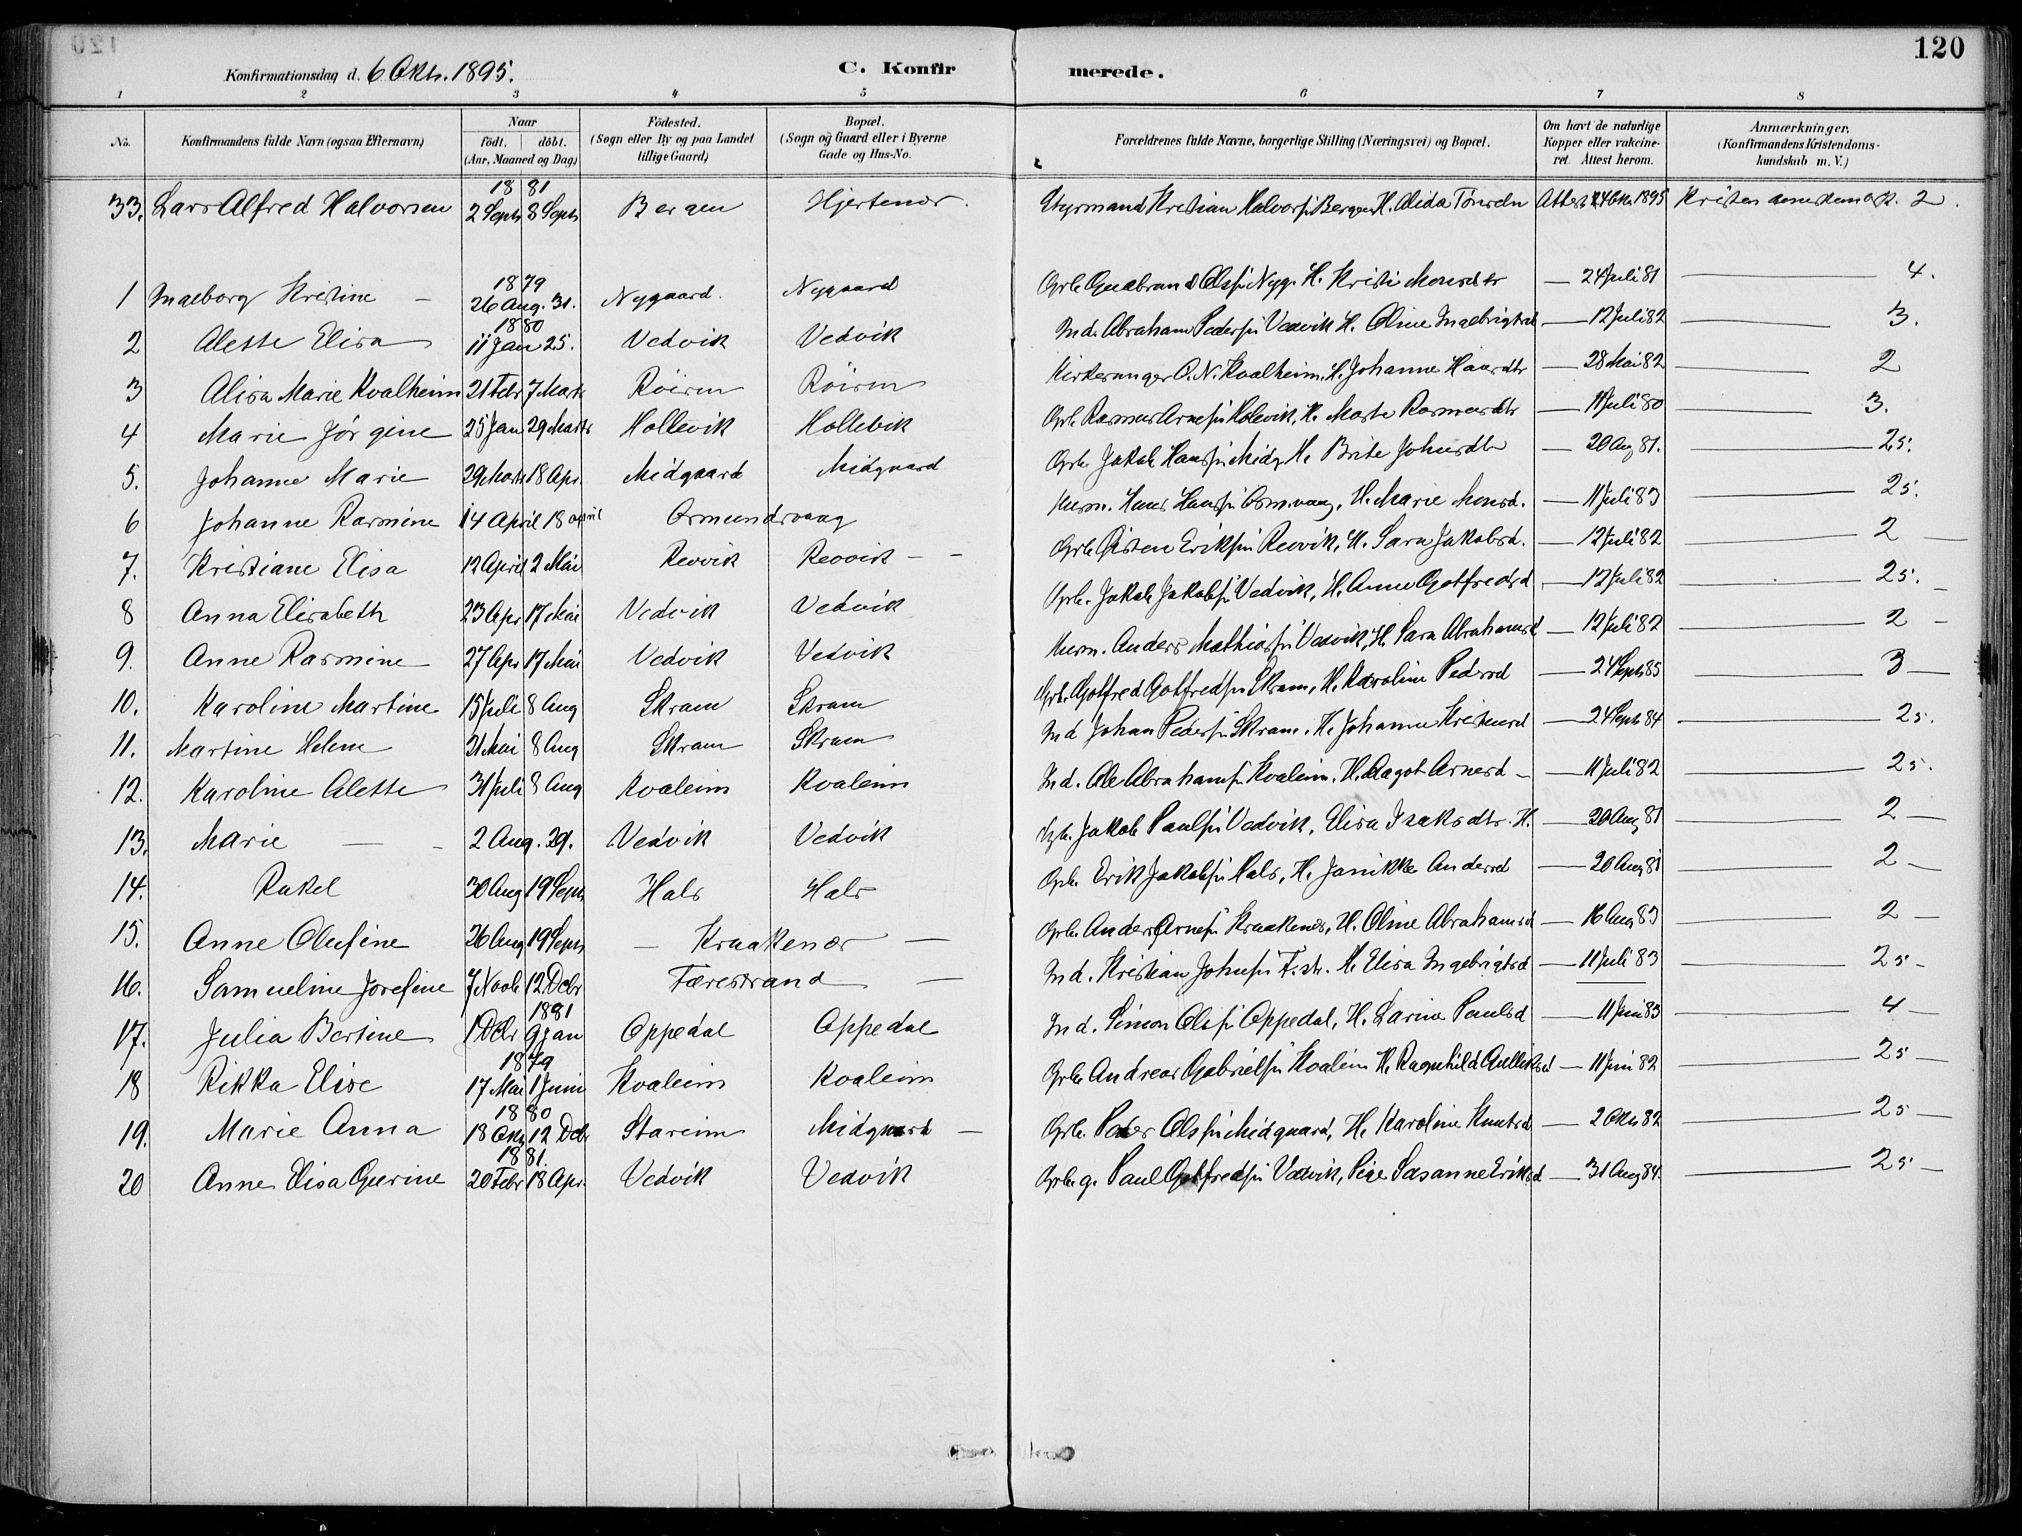 120
Konfirmationsdag d. 6 Okt. 1895. C. Konfirmerede.
1 2 3 4 5 6 7 8
No. Konfirmandens fulde Navn (ogsaa Efternavn) Naar födt. döbt. (Aar, Maaned og Dag) Födested. (Sogn eller By og paa Landet tillige Gaard) Bopæl. (Sogn og Gaard eller i Byerne Gade og Hus-No. Forældrenes fulde Navne, borgerlige Stilling (Næringsvei) og Bopæl. Om havt de naturlige Kopper eller vakcineret Attest herom. Anmærkninger. (Konfirmandens Kristendomskundskab m. V.)
1881
33. Lars Alfred Halvorsen 2 Septr 8 Septr Bergen Hjertenes. Styrmand Kristian Halvors. Bergen H. Alida Attest 1895 2.
1879
1 Ingeborg Kristine – 26 Aug. 31. Nygaard. Nygaard Grb. Gudbrand Ols. Nyg. H. Kristi Monsdtr — 24 Juli 81 — 4.
1880
2 Alette Elisa 11 Jan 25. Vedvik Vedvik Ind. Abraham Peders. Vedvik H. Oline Ingebrigtsd — 12 Juli 82 — 3.
3 Alisa Marie Kvalheim 21 Febr 7 Marts Röisen Röisen Kirkesanger O. N. Kvalheim. H. Johanne — 28 Mai 82 — 2
4 Marie Jörgine 25 Jan 29 Marts Hollevik Hollevik Grb. Rasmus Arnes. Holevik, H. Marte Rasmusdtr — 11 Juli 80 — 3.
5. Johanne Marie 29 Marts 18 Apr. Midgaard Midgaard Grb. Jakob Hans. Midg. H. Brite Johnsdtr — 20 Aug 81. — 25.
6 Johanne Rasmine 14 April 18 april Ormundsvaag Hans Hans. Ormsvaag, H. Marie Monsd. — 11 Juli 83 — 25.
7. Kristiane Elisa 12 April 2 Mai Revvik Revvik – – Grb. Östen Eriks. Revvik, H. Sara Jakobsd. — 12 Juli 82 — 2
8 Anna Elisabeth 23 Apr 17 Mai Vedvik Vedvik Grb. Jakob Jakobs. Vedvik, H. Anne Gotfredsd — 12 Juli 82 — 25.
9. Anne Rasmine 27 Apr 17 Mai Vedvik Vedvik Anders Mathias. Vedvik, H. Sara Abrahamsd — 12 Juli 82 — 2 –
10. Karoline Martine 15 Juli 8 Aug Skram Skram Grb. Gotfred Gotfreds. Skram, H. Karoline Pedersd — 24 Septr 85 — 3 —
11. Martine Helene 21 Mai 8 Aug Skram Skram Ind Johan Peders. Skram. H. Johanne Kristensd — 24 Septr 84 — 25.
12. Karoline Alette 31 Juli 8 Aug Kvaleim Kvaleim Ind. Ole Abrahams. Kvaleim. H. Aagot Arnesd – — 11 Juli 82 — 25.
13. Marie — – 2 Aug. 29. Vedvik Vedvik Grb. Jakob Pauls. Vedvik, Elisa Isaksdtr. H. — 20 Aug 81 — 2 –
14. Rakel 30 Aug 19 Septr Hals Hals Grb. Erik Jakobs. Hals, H. Janikke Andersd — 20 Aug 81 — 2 –
15. Anne Olufine 26 Aug 19 Septr – Kraakenes — Grb. Anders Arnes. Kraakenes, H. Oline Abrahamsd — 16 Aug 83 — 2 –
16. Samueline Josefine 7 Novb 12 Decbr Færestrand — Ind. Kristian Johns. F.str. H. Elisa Ingebrigtsd — 11 Juli 83 — 25 –
1881
17. Julia Bertine 1 Decbr 9 Jan Oppedal Oppedal Ind. Simon Ols. Oppedal, H. Larine Paulsd — 11 Juni 83 — 4 –
1879
18 Rikka Elise 17 Mai 1 Juni Kvaleim Kvaleim Grb. Andreas Gabriels. Kvaleim H. Ragnhild — 11 Juni 82 — 25 —
1880
19. Marie Anna 18 Okt 12 Decbr Stareim Midgaard — Grb. Peder Ols. Midgaard, H. Karoline Knutsd — 2 Okt 82 — 25 —
1881.
20 Anne Elisa Gurine 20 Febr 18 Apr. Vedvik Vedvik Grb. g. Paul Gotfreds. Vedvik, Pige Susanne Eriksd — 31 Aug 84. — 25 —